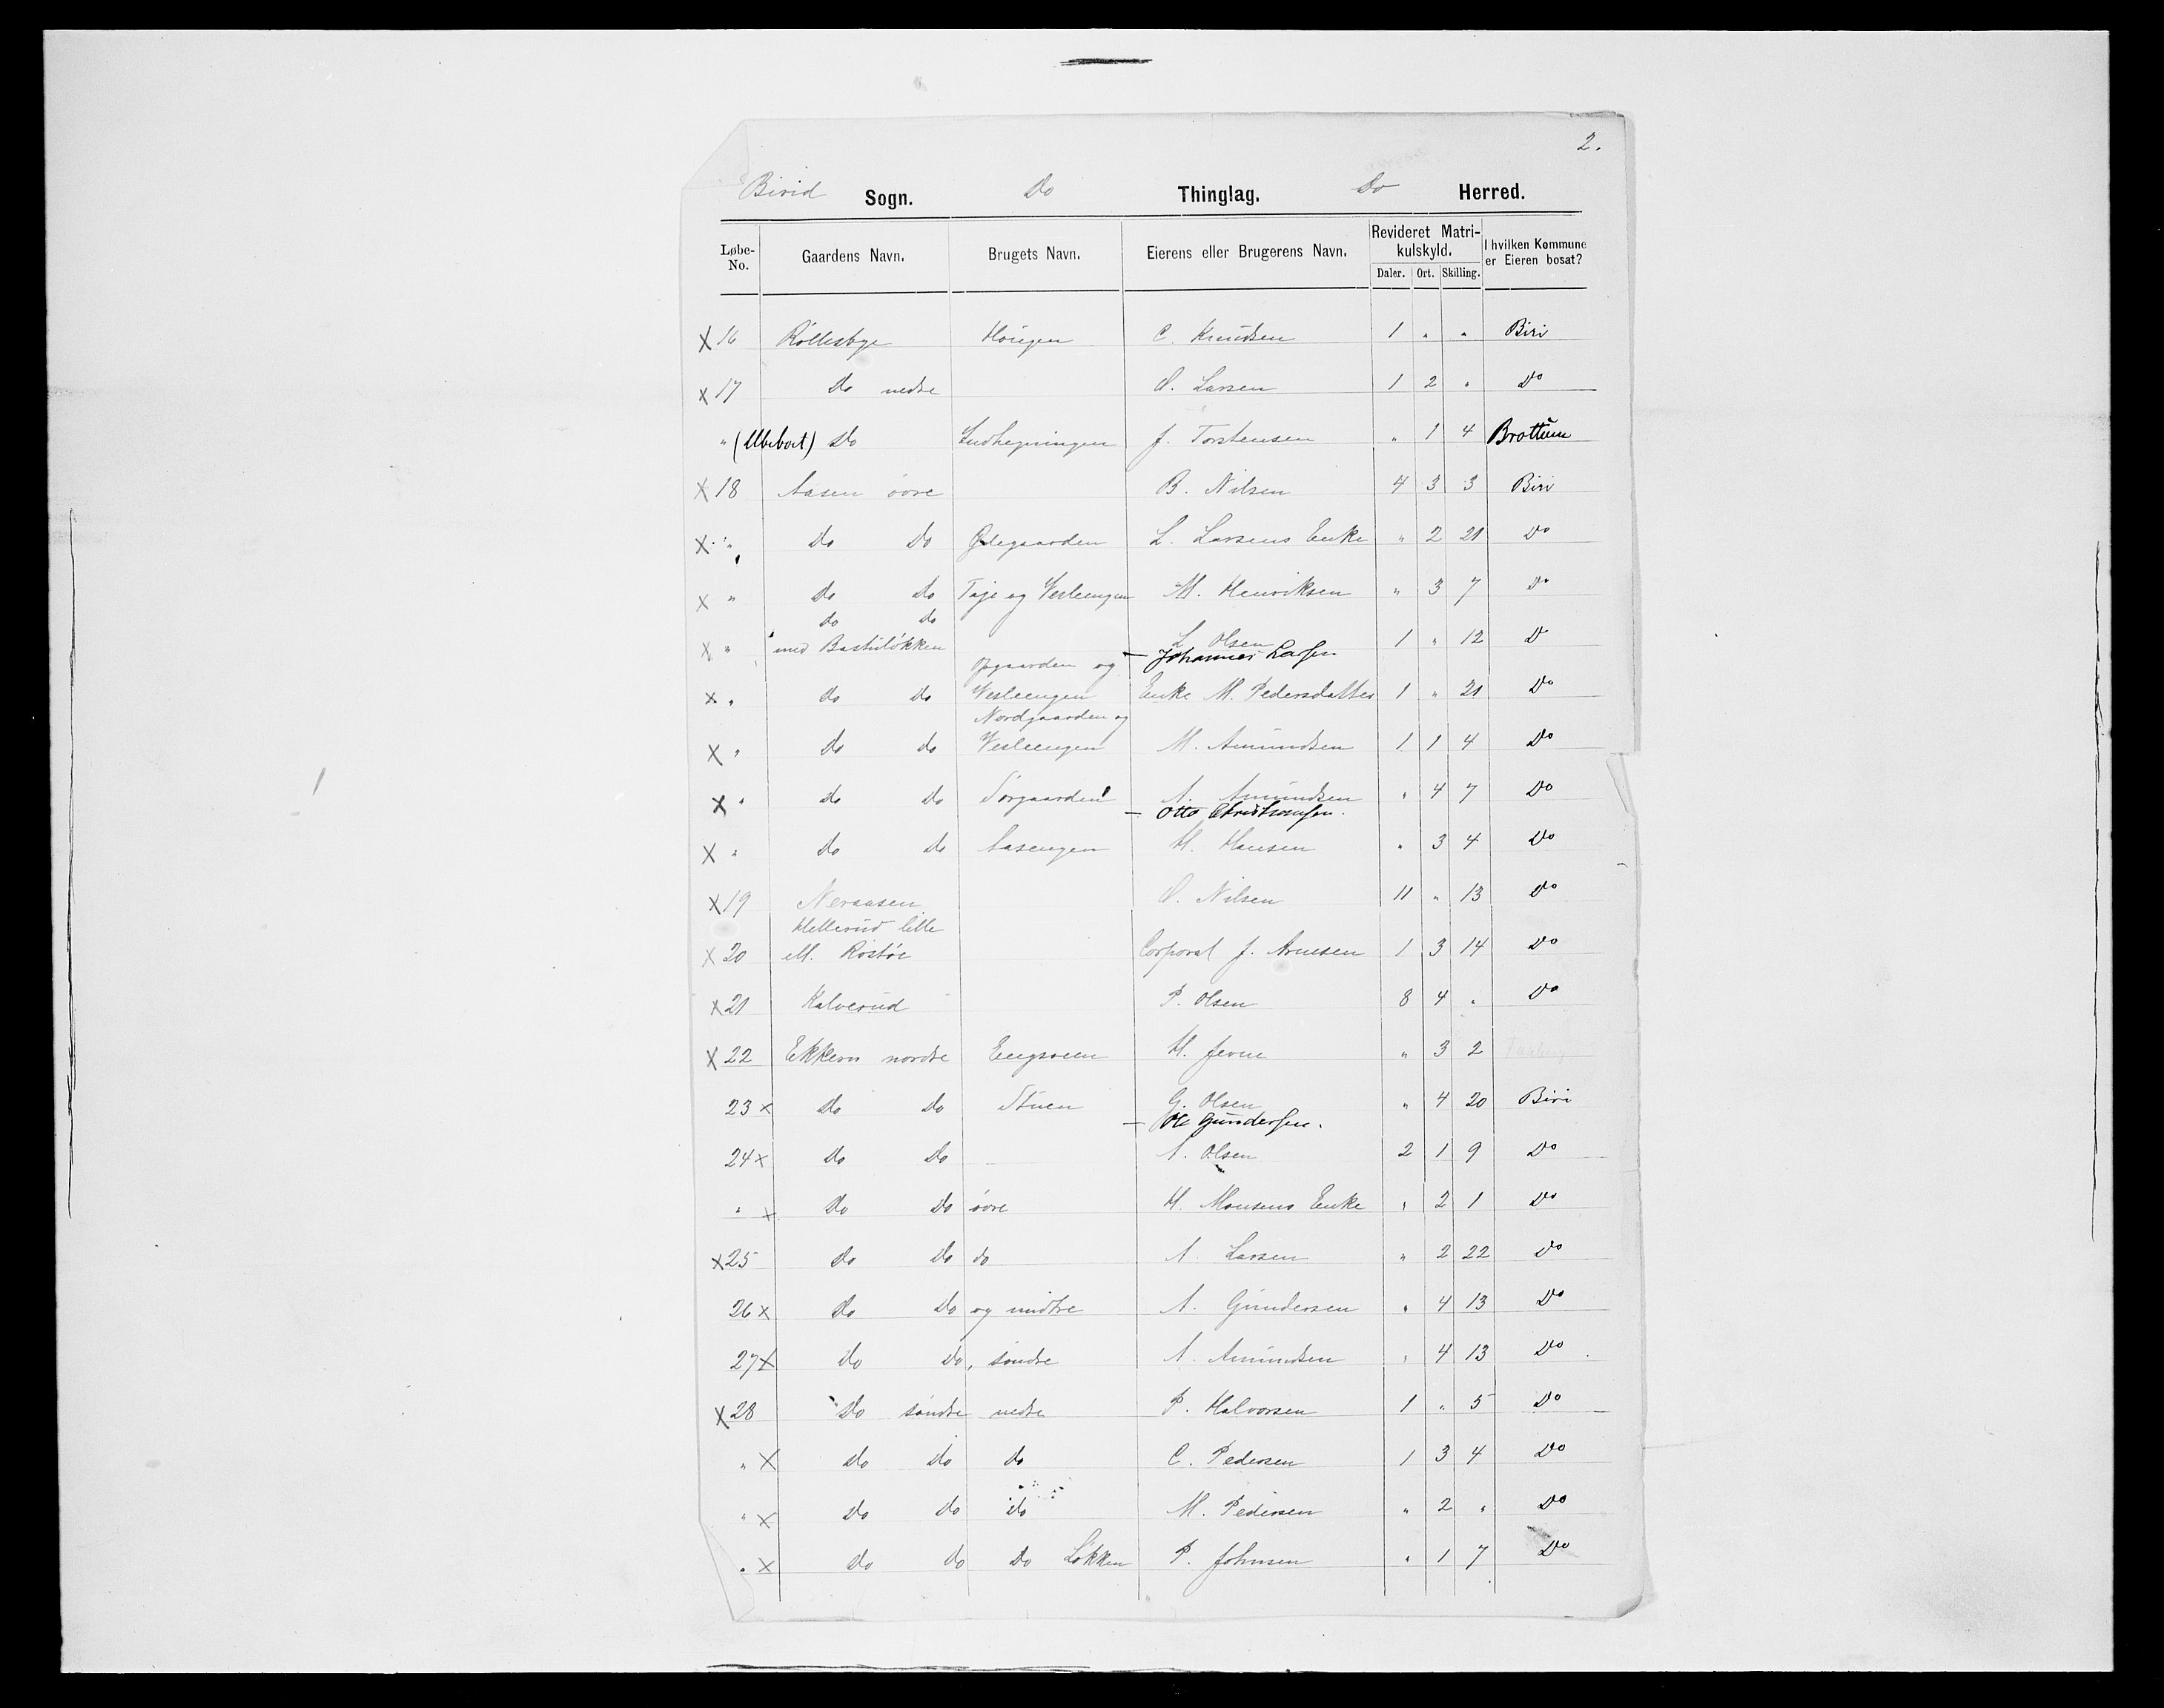 2.
Birid Sogn. Do Thinglag. Do Herred.
Løbe-No. Gaardens Navn. Brugets Navn. Eierens eller Brugerens Navn. Revideret Matrikulskyld. I hvilken Kommune er Eieren bosat?
Daler. Ort. Skilling.
X 16 Røllesbye Haugen C. Knudsen 1 " " Biri
X 17 Do nedre O. Larsen 1 2 " Do
" (Ubeboet) Do Indhegningen J. Torstensen " 1 4 Brøttum
X 18 Aasen øvre B. Nilsen 4 3 3 Biri
X " Do Do L. Larsens Enke " 2 21 Do
X " Do Do og Vesleengen M. Henriksen " 3 7 Do
do do
X " med Bastuløkken L Olsen 1 " 12 D
opgaarden og — Johannes Larsen
X " Do Do Vesleengen Enke M. Pedersdatter 1 " 21 Do
Nordgaarden og
X " Do Do Vesleengen M. Amundsen 1 1 4 Do
X " Do Do Sørgaarden A. Amundsen " 4 7 Do
— Otto Christiansen.
X " Do Do Aasengen H. Hansen " 3 4 Do
X 19 Neraasen O. Nilsen 11 " 13 Do
Hellerud lille
X 20 ell. Rostøe Corporal J. Arnesen 1 3 14 Do
X 21 Kalverud P. Olsen 8 4 " Do
X 22 Ekkern nordre Engsveen H. Jevne " 3 2
23 X Do Do Stuen G. Olsen " 4 20 Biri
— Ole Gundersen.
24 X Do Do A. Olsen 2 1 9 Do
" X Do Do øvre H. Monsens Enke " 2 1 Do
X 25 Do Do do A. Larsen " 2 22 Do
26 X Do Do og midtre A. Gundersen " 4 13 Do
27 X Do Do, søndre A. Amundsen " 4 13 Do
X 28 Do søndre nedre P. Halvorsen 1 " 5 Do
" X Do Do do C. Pedersen 1 3 4 Do
" X Do Do do M. Pedersen " 2 " Do
" X Do Do Do Løkken P. Johnsen " 1 7 Do